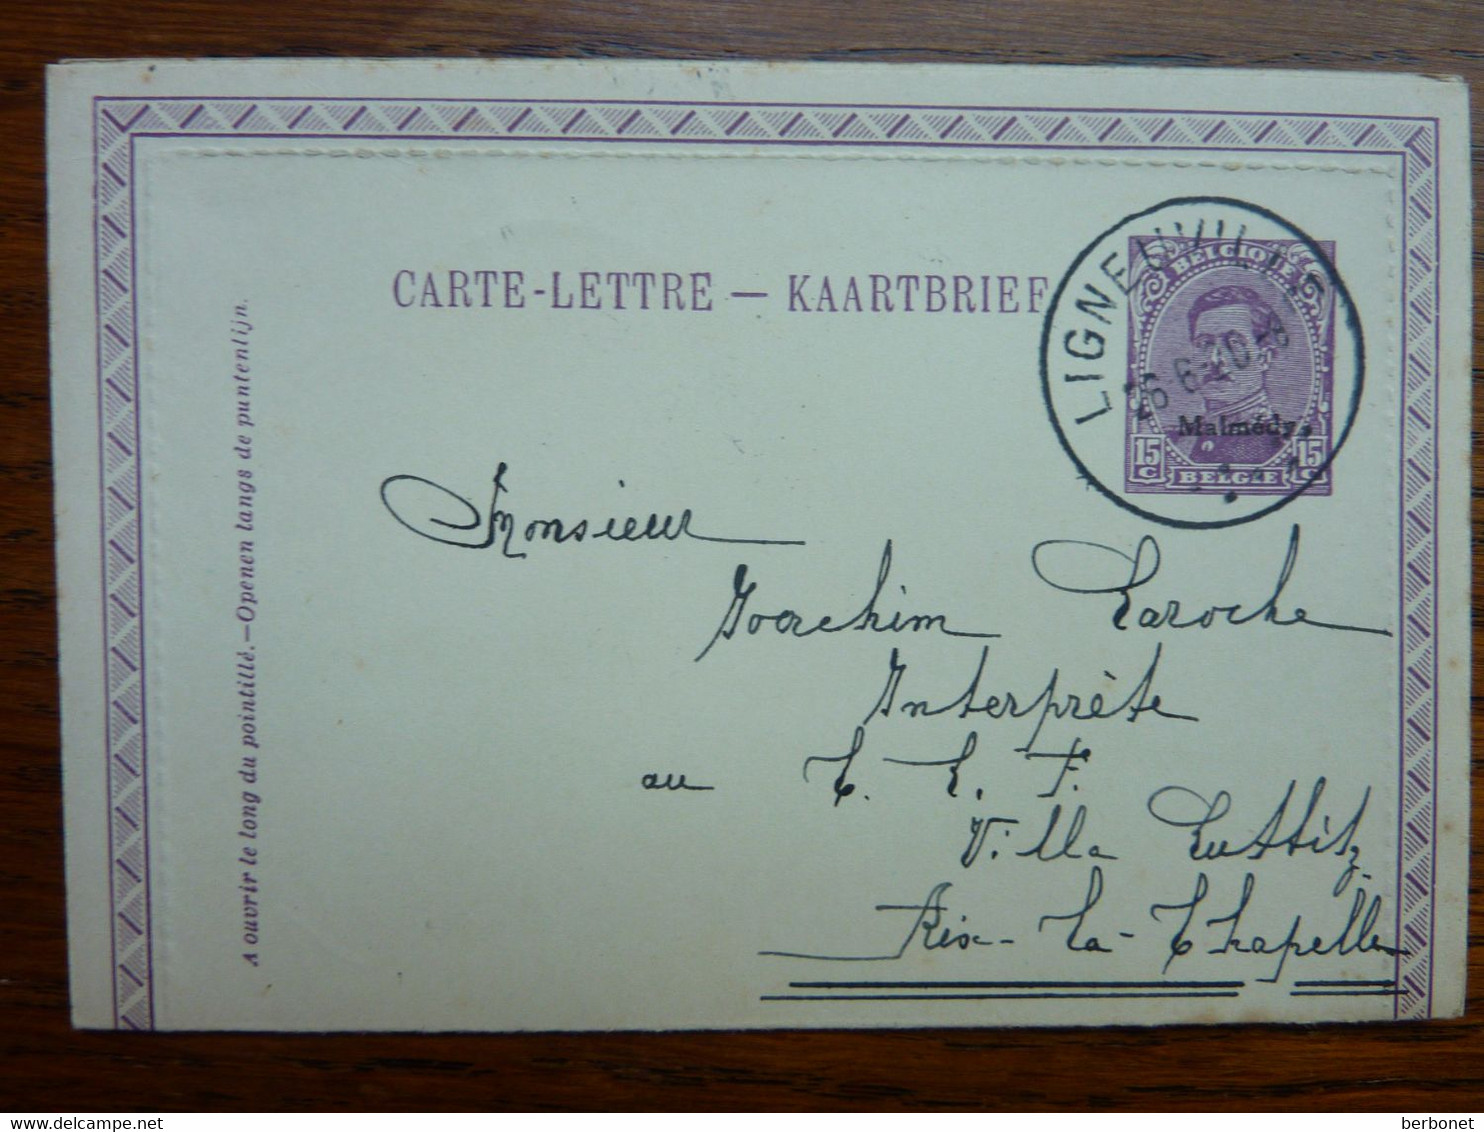 CARTE-LETTRE — KAARTBRIEF
LIGNEUVILLE
26 6-20-8
BELGIQUE
Malmédy
15 C 15 C
BELGIE
A ouvrir le long du pointillé.—Openen langs de puntenlijn.
Monsieur
Joachim Laroche
Interprète
au C. L. F.
Villa Luttitz
Aix-La-Chapelle
berbonet